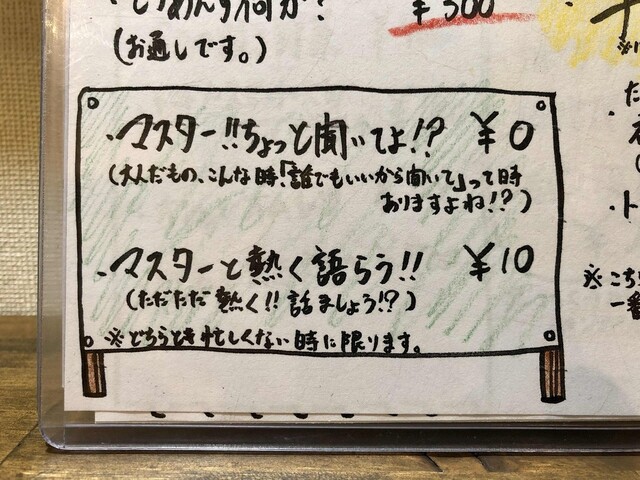 ¥300
(お通しです。)
・マスター!!ちょっと聞いてよ!? ¥0
(大人だもの、こんな時「誰でもいいから聞いて」って時
ありますよね!?)
・マスターと熱く語らう!! ¥10
(ただただ熱く!!話ましょう!?)
※どちらとも忙しくない時に限ります。
※こち